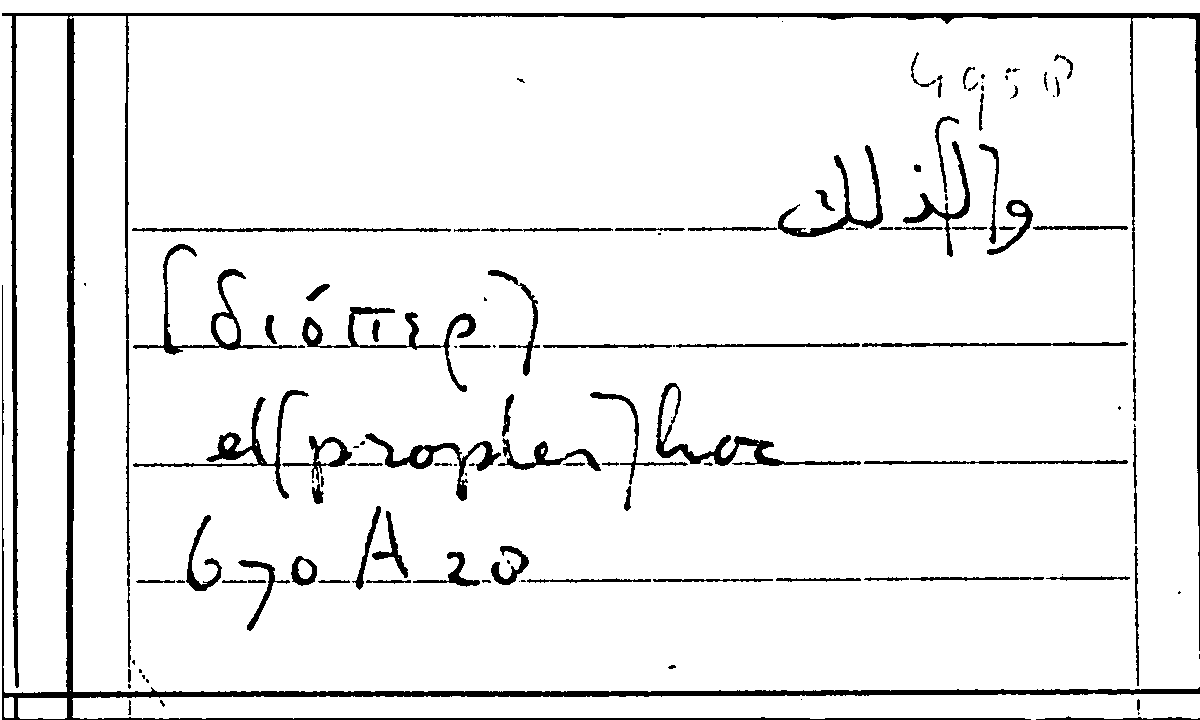 4958
و[ل]ذلك
[διόπερ]
et[propter]hoc
670 A 20